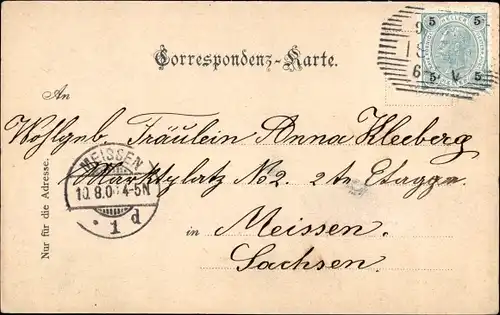 Correspondenz-Karte.
5 5
5 5
An
Wohlgeb Fräulein Anna Kleeberg
Marktplatz No 2. 2te Etagge
in Meissen.
Sachsen.
Nur für die Adresse.
MEISSEN
10.8.0 4-5N
1 d